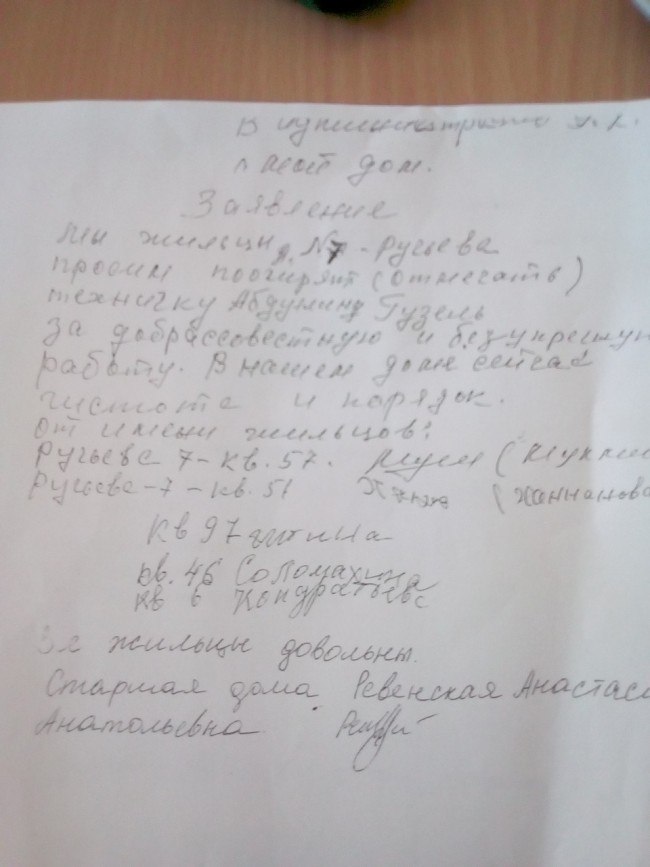 В
дом.
Заявление
Мы жильцы д. №7 - Ручьева
просим поощирят (отмечать)
техничку Гузель
за добрассовестную и безупречную
работу. В нашем доме сейчас
чистота и порядок.
от имени жильцов:
Ручьева 7 - кв. 57.
Ручьева - 7 - кв. 51 (Ханнанова
кв 97
кв. 46 Соломахина
кв 6 Кондратьева
жильцы довольны.
Старшая дома Ревенская Анастас
Анатольевна